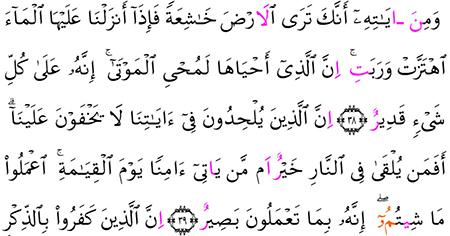 وَمِنَ ـايَـٰتِهِۦٓ أَنَّكَ تَرَى اَلَارْضَ خَـٰشِعَةٗ فَإِذَآ أَنزَلْنَا عَلَيْهَا اَلْمَآءَ
اَهْتَزَّتْ وَرَبَتِ اِنَّ اَلَّذِےٓ أَحْيَاهَا لَمُحْيِ اِلْمَوْتَىٰٓ ۚ إِنَّهُۥ عَلَىٰ كُلِّ
شَےْءٖ قَدِيرٌ ۝٣٨ اِنَّ اَلذِينَ يُلْحِدُونَ فِےٓ ءَايَـٰتِنَا لَا يَخْفَوْنَ عَلَيْنَآ ۗ
أَفَمَن يُلْقَىٰ فِے اِلنَّارِ خَيْرٌ اَم مَّن يَاتِےٓ ءَامِنٗا يَوْمَ اَلْقِيَـٰمَةِ ۚ اِعْمَلُواْ
مَا شِيتُمُۥٓ ۖ إِنَّهُۥ بِمَا تَعْمَلُونَ بَصِيرٌ ۝٣٩ اِنَّ اَلذِينَ كَفَرُواْ بِالذِّكْرِ